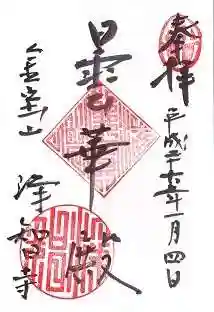 奉拝
平成二十六年一月四日
曇華殿
金宝山
浄智寺